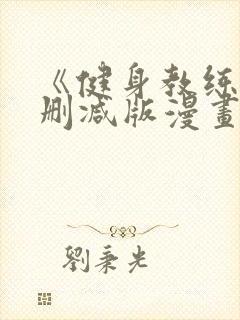 《健身教练
删减版漫畫
劉秉光